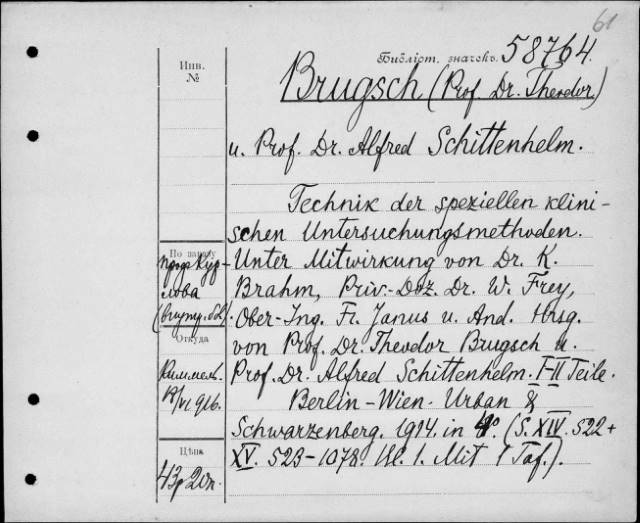 61
Библіот. значекъ. 58764.
Инв. №
Brugsch (Prof. Dr. Theodor)
u. Prof. Dr. Alfred Schittenhelm.
Technik der speziellen klini-
schen Untersuchungsmethoden.
Unter Mitwirkung von Dr. K.
Brahm, Priv.-Doz. Dr. W. Frey,
Ober-Ing. Fr. Janus u. And. Hrsg.
von Prof. Dr. Theodor Brugsch u.
Prof. Dr. Alfred Schittenhelm. I-II Teile.
Berlin-Wien. Urban &
Schwarzenberg. 1914. in 4º. (S. XIV. 522 +
XV. 523-1078. Ill. 1. Mit 1 Taf.).
По заказу
проф. Кур-
лова
Откуда
Киммель.
VI 916.
Цѣна
43р 20к.